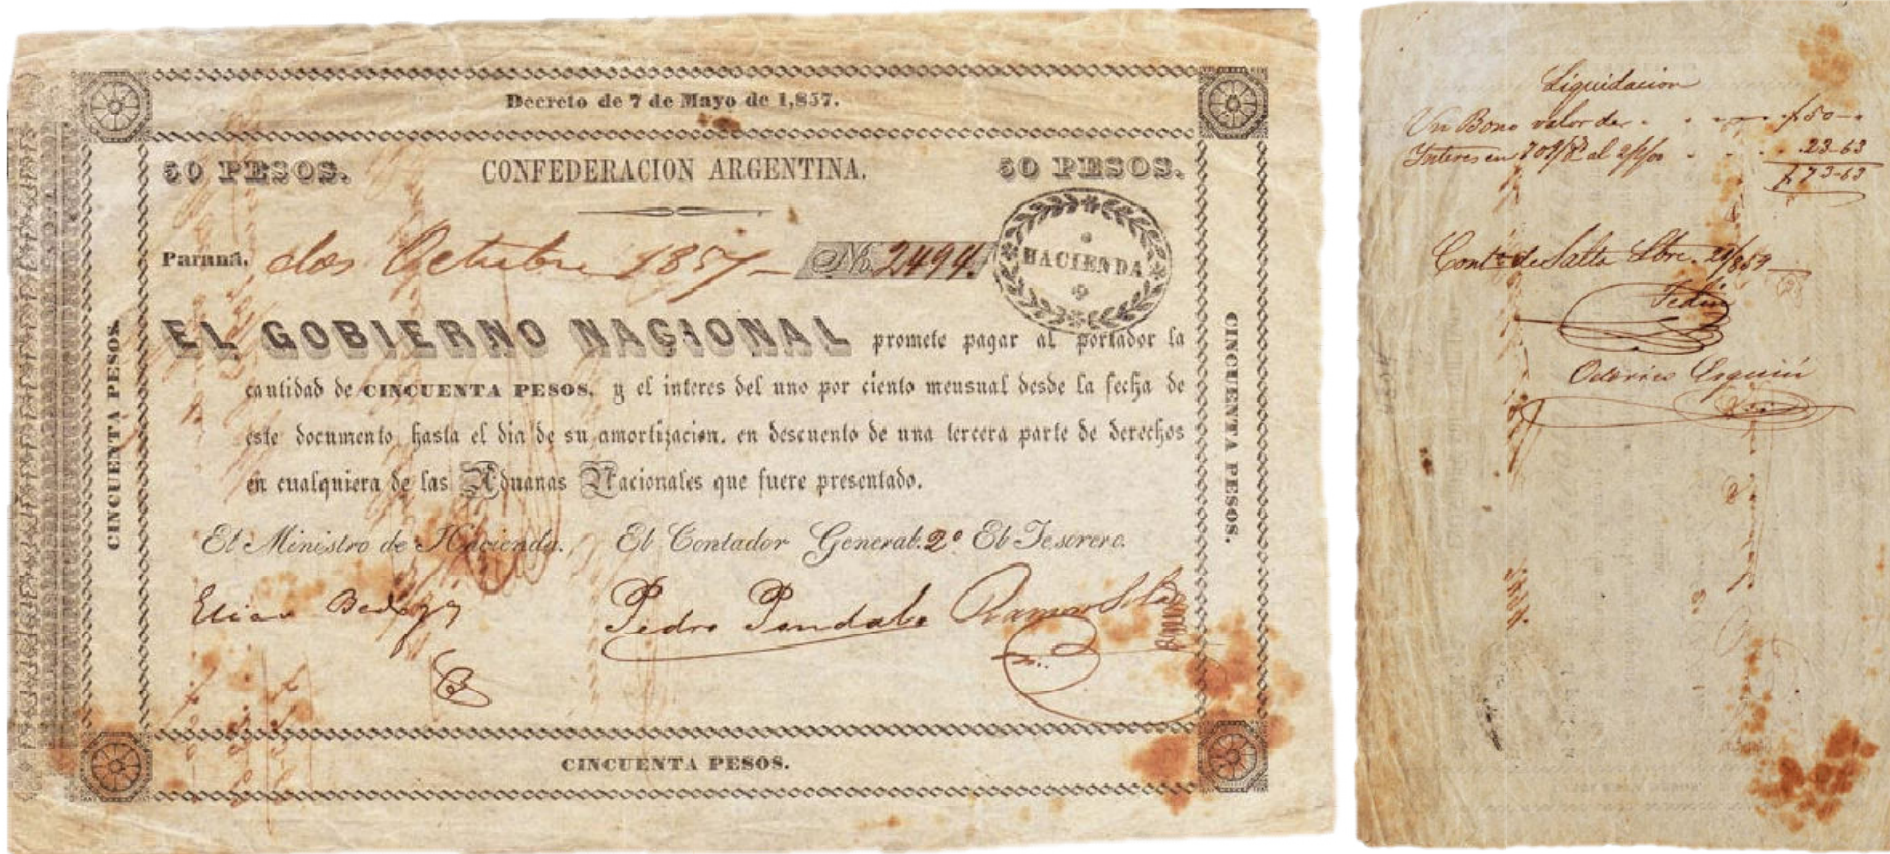 Decreto de 7 de Mayo de 1,857.
50 PESOS. CONFEDERACION ARGENTINA. 50 PESOS.
Paraná. dos Octubre 1857 No. 2494.
HACIENDA
EL GOBIERNO NACIONAL promete pagar al portador la
cantidad de CINCUENTA PESOS, y el interes del uno por ciento mensual desde la fecha de
este documento hasta el dia de su amortizacion, en descuento de una tercera parte de derechos
en cualquiera de las Aduanas Nacionales que fuere presentado.
El Ministro de Hacienda. El Contador General. 2º El Tesorero.
Elias Bedoya Pedro Pondal Ramon
CINCUENTA PESOS.
CINCUENTA PESOS.
CINCUENTA PESOS.
Liquidacion
Un Bono valor de 50
Interes en al 23-63
73-63
de Salta